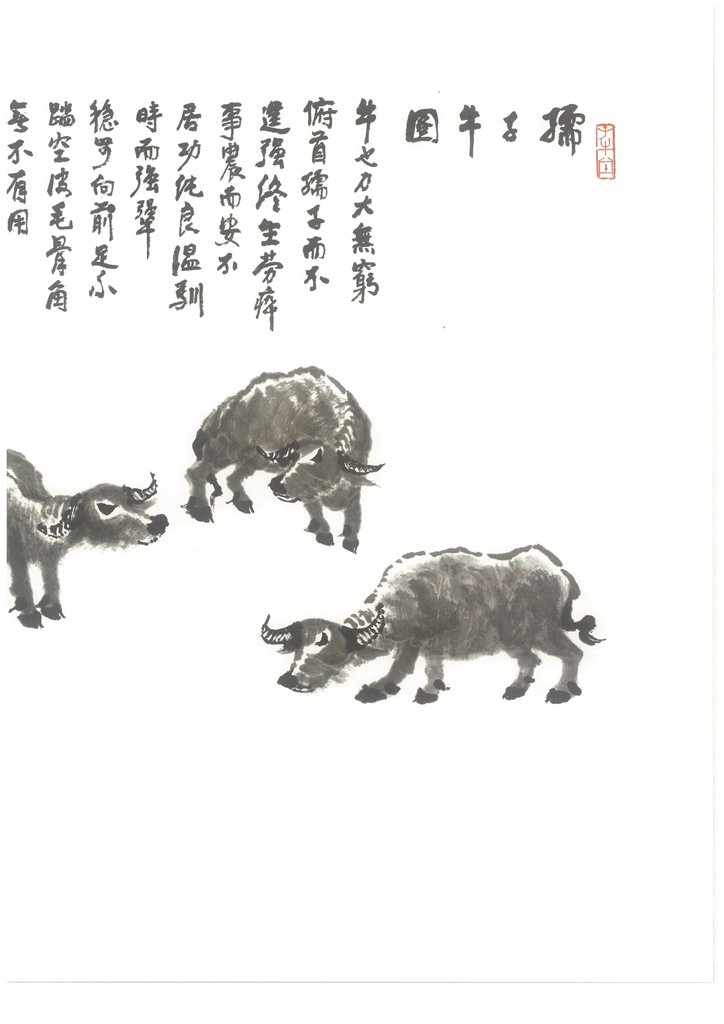 孺子牛圖
牛也力大無窮
俯首孺子而不
逞强終生劳瘁
事農而安不
居功纯良温馴
時而強犟
稳步向前足不
踏空皮毛骨角
無不有用